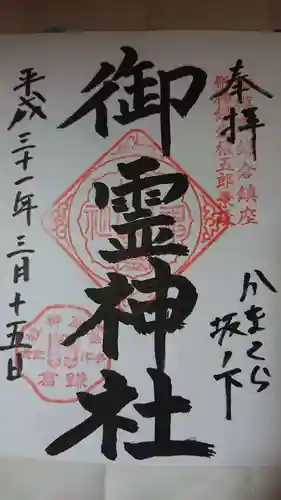 奉拝
かまくら
坂ノ下
御霊神社
平成三十一年三月十五日
鎌倉